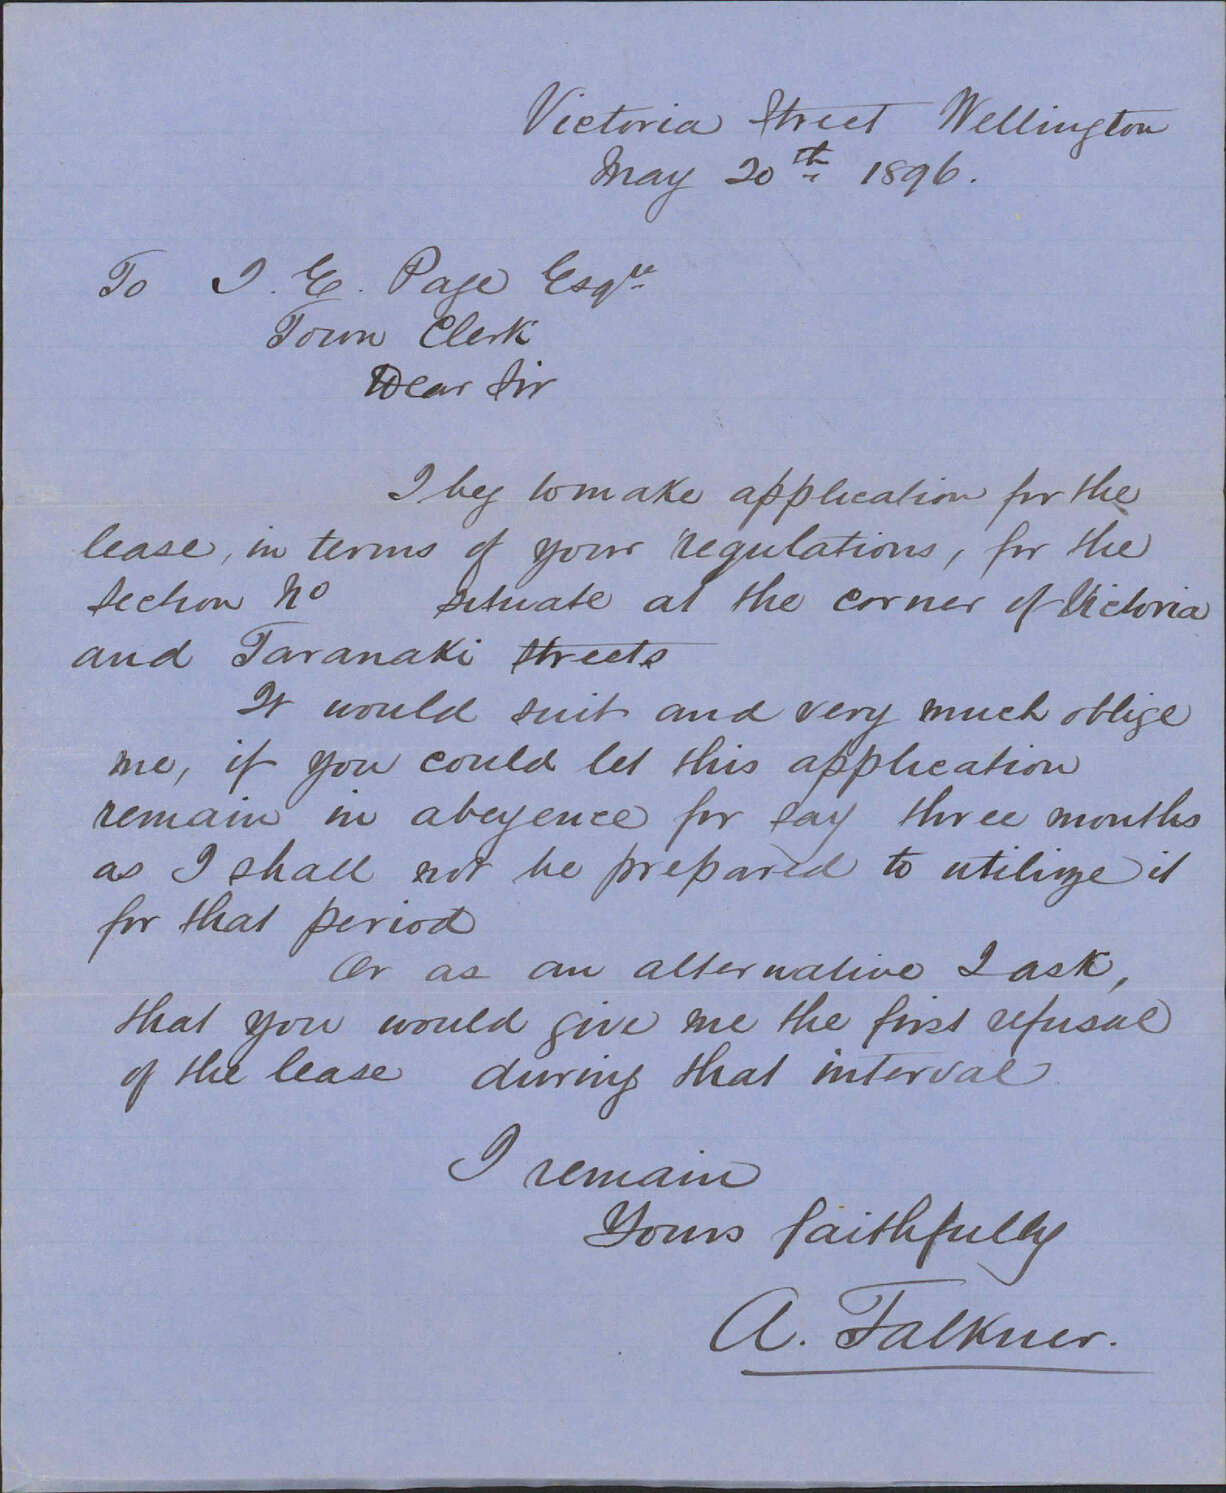 Victoria Street Wellington
May 20th 1896.
To J. E. Page Esqre
Town Clerk
Dear Sir
I beg to make application for the
lease, in terms of your regulations, for the
Section No situate at the corner of Victoria
and Taranaki Streets
It would suit and very much oblige
me, if you could let this application
remain in abeyence for say three months
as I shall not be prepared to utilize it
for that period
Or as an alternative I ask,
that you would give me the first refusal
of the lease during that interval
I remain
Yours faithfully
A. Falkner.